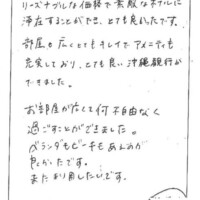 リーズナブルな価格で素敵なホテルに
滞在することができ、とても良かったです。
部屋も広くとてもキレイでアメニティも
充実しており、とても良い沖縄旅行が
できました。
お部屋が広くて何不自由なく
過ごすことができました。
ベランダもビーチもあんなが
良かったです。
また利用したいです。